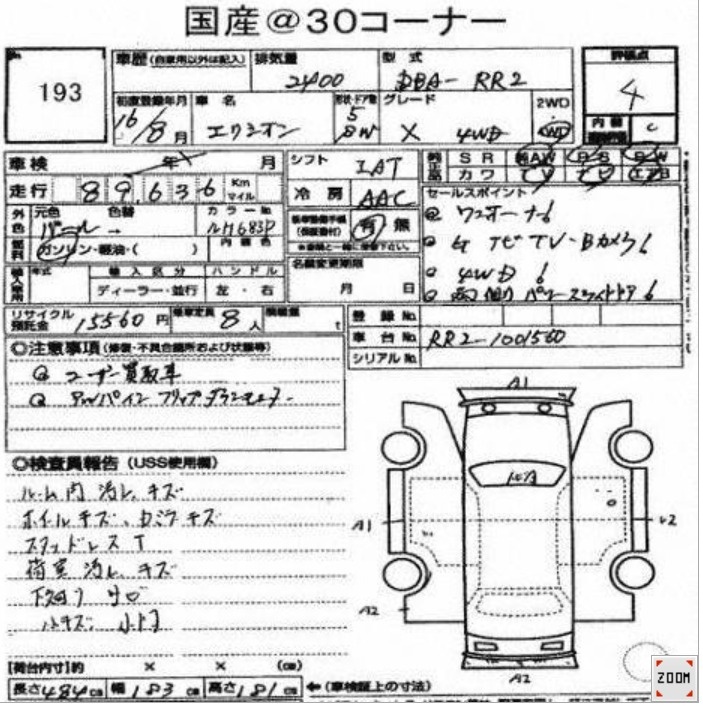 国産@30コーナー
193
車歴(自家用以外は記入) 排気量 型式 評価点
2400 DBA- RR2 4
初度登録年月 車名 形状・ドア数 グレード 2WD
16/8月 エリシオン 5 8W X 4WD 4WD
内装 C
車検 年 月 シフト IAT 純正品 SR AW PS PW
走行 89,636 Km マイル 冷房 AAC カワ TV
外色 元色 色替 カラーNo. セールスポイント
パール NH683P 内装色 有・無 ワンオーナー
燃料 ガソリン・軽油・( ) ナビTV・Bカメラ
年式 輸入区分 ハンドル 名義変更期限 4WD
ディーラー・並行 左・右 月 日 両側パワースライドドア
リサイクル預託金 15560円 乗車定員 8人 積載量 t 登録No.
車台No. RR2-1001560
シリアルNo.
◎注意事項(修復・不具合箇所および状態等)
ユーザー買取車
アルパインフリップダウンモニター
A1
◎検査員報告(USS使用欄)
ルーム内汚れ、キズ
ホイルキズ、
スタッドレスT
荷室汚れ、キズ
下廻りサビ
A1
A2
A2
[荷台内寸]約 × × (cm)
長さ484cm 幅183cm 高さ181cm ←(車検証上の寸法)
ZOOM